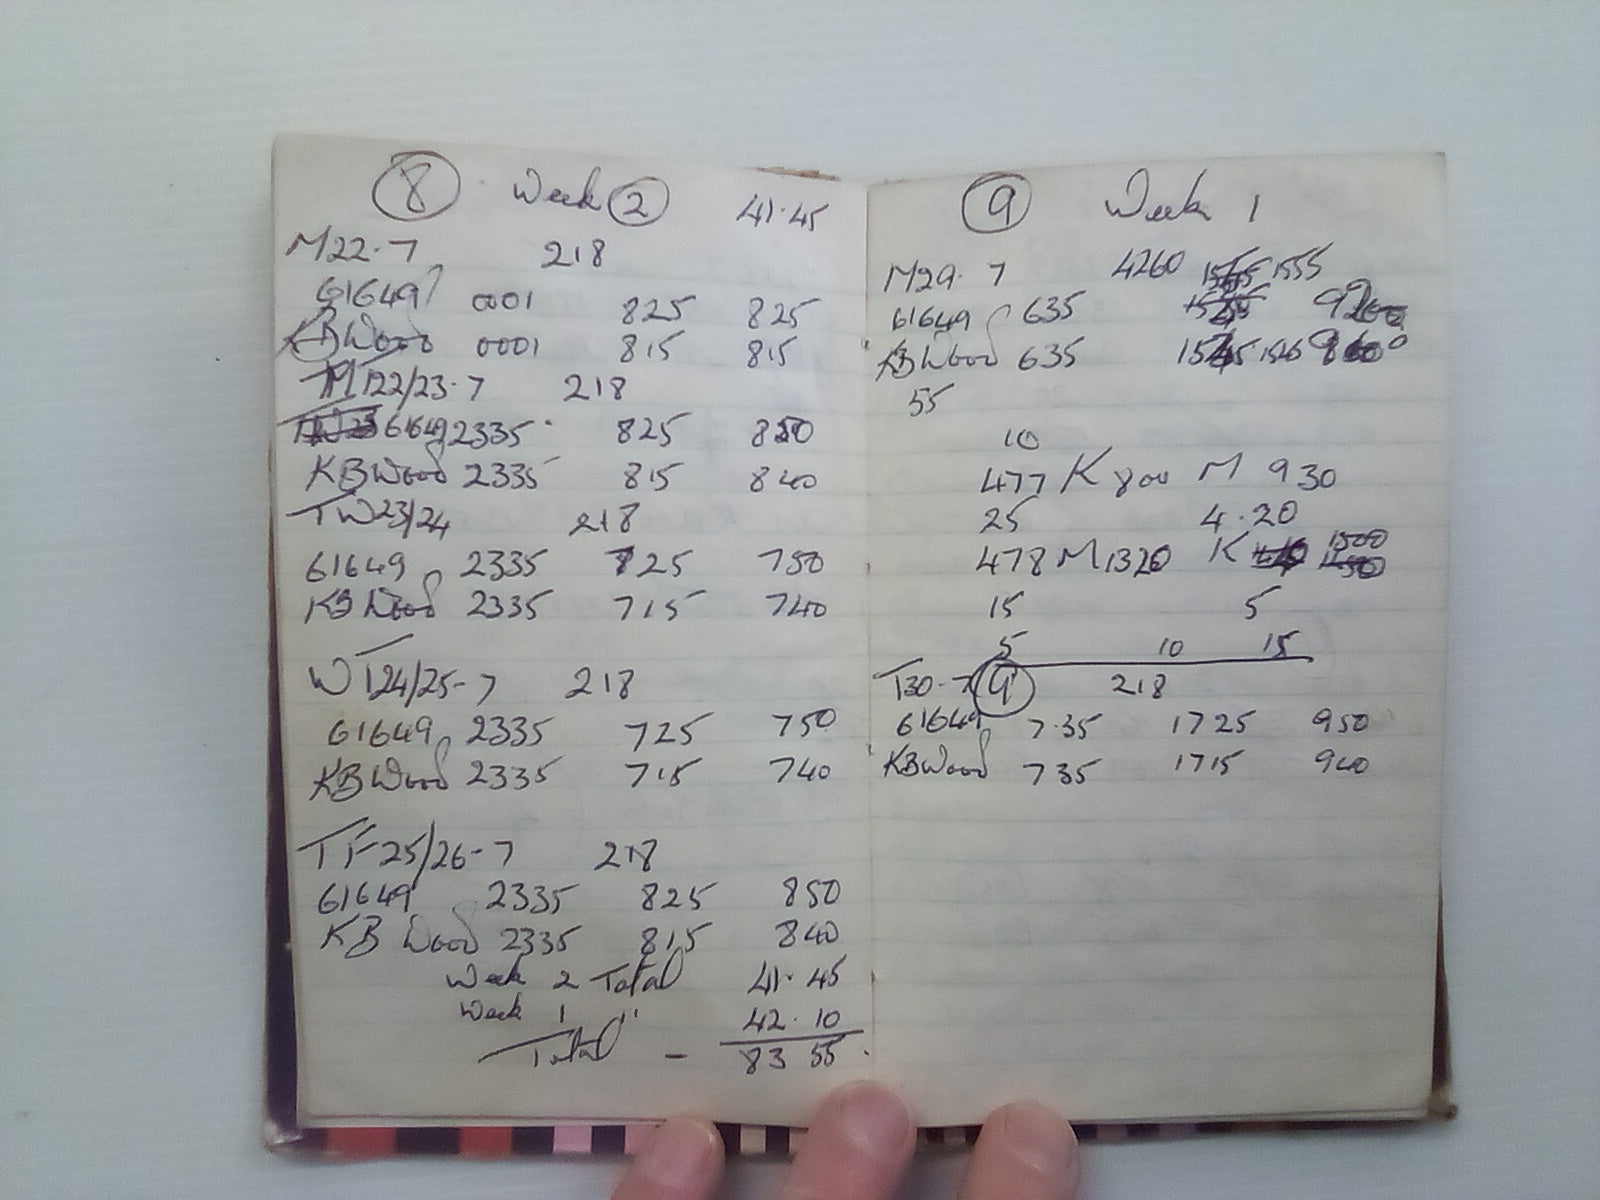 8 Week 2 41.45
M22.7 218
61649 0001 825 825
KBWood 0001 815 815
TM 22/23.7 218
61649 2335 825 850
KBWood 2335 815 840
TW23/24 218
61649 2335 725 750
KBWood 2335 715 740
WT24/25-7 218
61649 2335 725 750
KBWood 2335 715 740
TF25/26-7 218
61649 2335 825 850
KB Wood 2335 815 840
Week 2 Total 41.45
Week 1 " 42.10
Total - 83 55
9 Week 1
M29.7 4260 1555
61649 635
KBWood 635
55
10
477 K 800 M 930
25 4.20
478 M1320 K 1500
15 5
5 10 15
T30-7 9 218
61649 7.35 1725 950
KBWood 735 1715 940